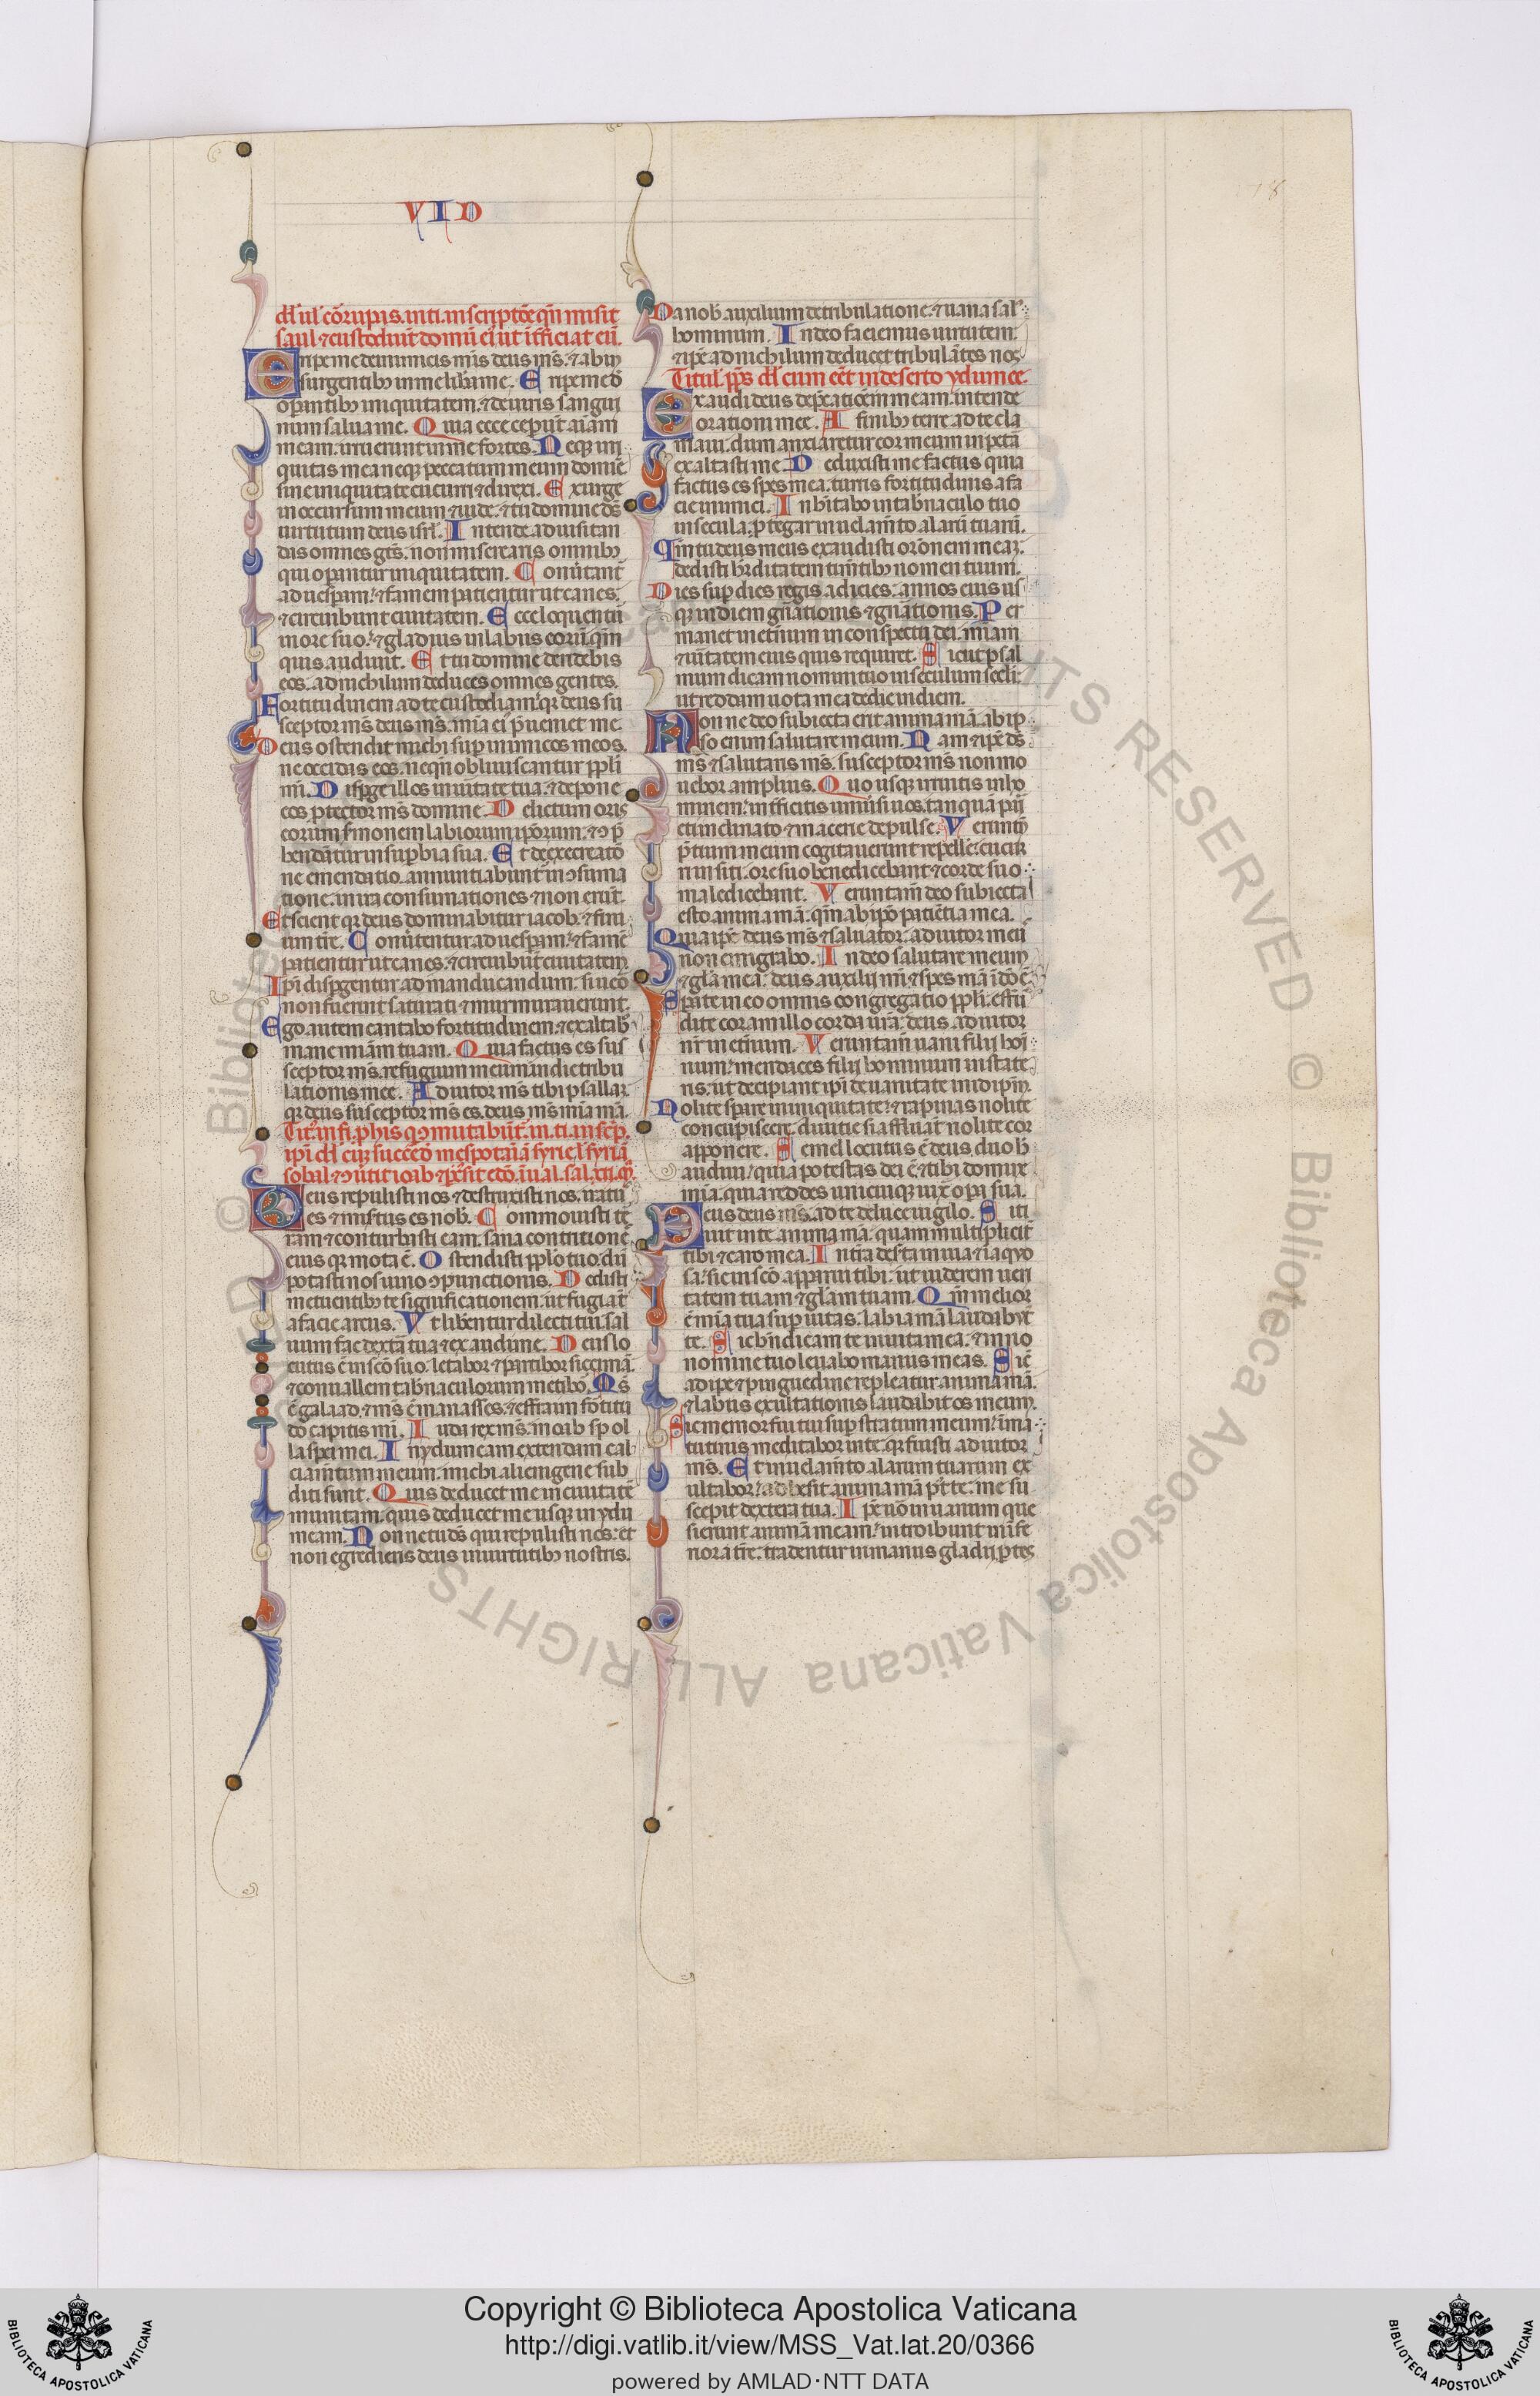 VID
dd̄ ul' cōrupis. in ti. in scriptōe qn̄ misit
saul ⁊ custodiūt domū ei' ut īt̄ficiat eū.
Eripe me de inimicis m̄is deus m̄s. ⁊ ab in
surgentibꝫ in me lib̄a me. Eripe me d̓
opantibꝫ iniquitatem. ⁊ de uiris sangui
num salua me. Quia ecce ceperūt aīam
meam. irruerunt in me fortes. Neqꝫ ini
quitas mea neqꝫ peccatum meum domīe
sine iniquitate cucurri ⁊ direxi. Exurge
in occursum meum ⁊ uide. ⁊ tu domine ds̄
uirtutum deus isrl'. Intende ad uisitan
das omnes gt̄s. non miserearis omnibꝫ
qui opantur iniquitatem. Conūtant̄
ad uesꝑam. ⁊ famem patientur ut canes.
⁊ circuibunt ciuitatem. Ecce loquentū
in ore suo. ⁊ gladius in labiis eorū. qm̄
quis audiuit. Et tu domine deridebis
eos. ad nichilum deduces omnes gentes.
Fortitudinem ad te custodiam. qr deus su
sceptor m̄s deus m̄s. mīa ei' p̄ueniet me.
Deus ostendit michi suꝑ inimicos meos.
ne occidas eos. neqn̄ obliuiscantur ppl̄i
mī. Disꝑge illos in uirtute tua. ⁊ depone
eos ꝓtector m̄s domine. Delictum oris
eorum s̄monem labiorum iporum. ⁊ ꝯp̄
hendātur in suꝑbia sua. Et de execratō
ne ⁊ mendatio. annuntiabunt̄ in ꝯsuma
tione. in ira consumationes ⁊ non erūt.
Et scient qr deus dominabitur iacob. ⁊ fini
um tr̄e. Conūtentur ad uesꝑam. ⁊ famē
patientur ut canes. ⁊ circuibūt ciuitatem.
Ip̄i disꝑgentur ad manducandum. si ū cō
non fuerint saturati ⁊ murmurauerunt.
Ego autem cantabo fortitudinem. ⁊ exaltabo
mane mīam tuam. Quia factus es sus
sceptor m̄s. refugium meum in die tribu
lationis mee. Adiutor m̄s tibi psallaꝫ
qr deus susceptor m̄s es. deus m̄s mīa mā.
Tit'. in fī. ꝓ his q̄ ꝯmutabūt. in ti. inscp̄.
ip̄i dd̄ cuꝫ succēd mesopotaīā syrie ⁊ syriā
sobal. ⁊ ꝯūtit ioab ⁊ ꝑcs̄it edō. in ual. sal. xii. m̄.
Deus repulisti nos ⁊ destruxisti nos. iratꝰ
es ⁊ misertus es nob'. Commouisti tr̄
ram ⁊ conturbasti eam. sana contritionē
eius qr mota ē. Ostendisti ppl̄o tuo. du
potasti nos uino ꝯpunctionis. Dedisti
metuentibꝫ te significationem. ut fugiāt
a facie arcus. Vt lib̄entur dilecti tui. sal
uum fac dextā tua ⁊ exaudi me. Deus lo
cutus ē in scō suo. letabor ⁊ partibor siccimā.
⁊ conuallem tab̄naculorum metibo. M̄s
ē galaad. ⁊ m̄s ē manasses. ⁊ effraim fōtitu
dō capitis mī. Iuda rex m̄s. moab sp ol
la spei mei. In ydumeam extendam cal
ciam̄tum meum. michi alienigene sub
diti sunt. Quis deducet me in ciuitatē
munitam. quis deducet me usqꝫ in ydu
meam. Nonne tu ds̄ qui repulisti nos. et
non egredieris deus in uirtutibꝫ nostris.
Da nob' auxilium de tribulatione. ⁊ uana sal'
hominum. In deo faciemus uirtutem.
⁊ ip̄e ad nichilum deducet tribulātes nos.
Titul' pp̄s dd̄ cum eēt in deserto ydumee.
Exaudi deus dep̄caticēm meam. intende
orationi mee. A finibꝫ terre ad te cla
maui. dum anxiaretur cor meum in petā
exaltasti me. Deduxisti me factus quia
factus es spes mea. turris fortitudinis a fa
cie inimici. Inhitabo in tab̄naculo tuo
in secula. ꝓtegar in uelam̄to alarū tuarū.
Qm̄ tu deus meus exaudisti orōnem meaꝫ.
dedisti h̄reditatem tim̄tibꝫ nomen tuum.
Dies sup dies regis adicies. annos eius us
qꝫ in diem gn̄ationis ⁊ gn̄ationis. Per
manet in et̄num in conspectu dei. mīam
⁊ ūitatem eius quis requiret. Sicut psal
mum dicam nomini tuo in seculum scl̄i.
ut reddam uota mea de die in diem.
Nonne deo subiecta erit anima mā. ab ip
so enim salutare meum. Nam ⁊ ip̄e ds̄
m̄s ⁊ salutaris m̄s. susceptor m̄s non mo
uebor amplius. Quousqꝫ irruitis in ho
minem. int̄ficitis uniūsi uos. tanquā pari
eti inclinato ⁊ macerie depulse. Verunt̄n
p̄tium meum cogitauerunt repelle. cucur
ri in siti. ore suo benedicebant ⁊ corde suo
maledicebant. Veruntam̄ deo subiecta
esto anima mā. qm̄ ab ip̄o patiētia mea.
Quia ip̄e deus m̄s ⁊ saluator. adiutor meū
non emigrabo. In deo salutare meum
⁊ gl̄a mea. deus auxilii mī. ⁊ spes mā ī dō ē.
Sꝑate in eo omnis congregatio ppl̄i. effū
dite coram illo corda ūrā. deus adiutor
nr̄ in et̄num. Veruntam̄ uani filij hoī
num. mendaces filij hominum in state
ris. ut decipiant ip̄i de uanitate in idip̄m.
Nolite sꝑare in iniquitate. ⁊ rapinas nolite
concupiscere. diuitie si affluāt nolite cor
apponere. Semel locutus ē deus. duo h̄
audiui. quia potestas dei ē. ⁊ tibi domine
mīa. quia reddes unicuiqꝫ iux̄ opa sua.
Deus deus m̄s. ad te de luce uigilo. Siti
uit in te anima mā. quam multiplicit̄
tibi ⁊ caro mea. In t̄ra desta inuia ⁊ inaquo
sa. sic in scō apparui tibi. ut uiderem uir
tutem tuam ⁊ gl̄am tuam. Qm̄ melior
ē mīa tua sup uitas. labia mā laudabūt
te. Sic bn̄dicam te in uita mea. ⁊ in no
nomine tuo leuabo manus meas. Sic̄
adipe ⁊ pinguedine repleatur anima mā.
⁊ labiis exultationis laudabit os meum.
Sic memor fui tui sup stratum meum. ī ma
tutinis meditabor in te. qr fuisti adiutor
m̄s. Et in uelam̄to alarum tuarum ex
ultabor. adhesit anima mā p̄t te. me su
scepit dextera tua. Ip̄i uō in uanum que
sierunt animā meam. introibunt in īfe
riora tr̄e. tradentur in manus gladij. ꝑtes
Copyright © Biblioteca Apostolica Vaticana
http://digi.vatlib.it/view/MSS_Vat.lat.20/0366
powered by AMLAD·NTT DATA
BIBLIOTECA APOSTOLICA VATICANA
BIBLIOTECA APOSTOLICA VATICANA